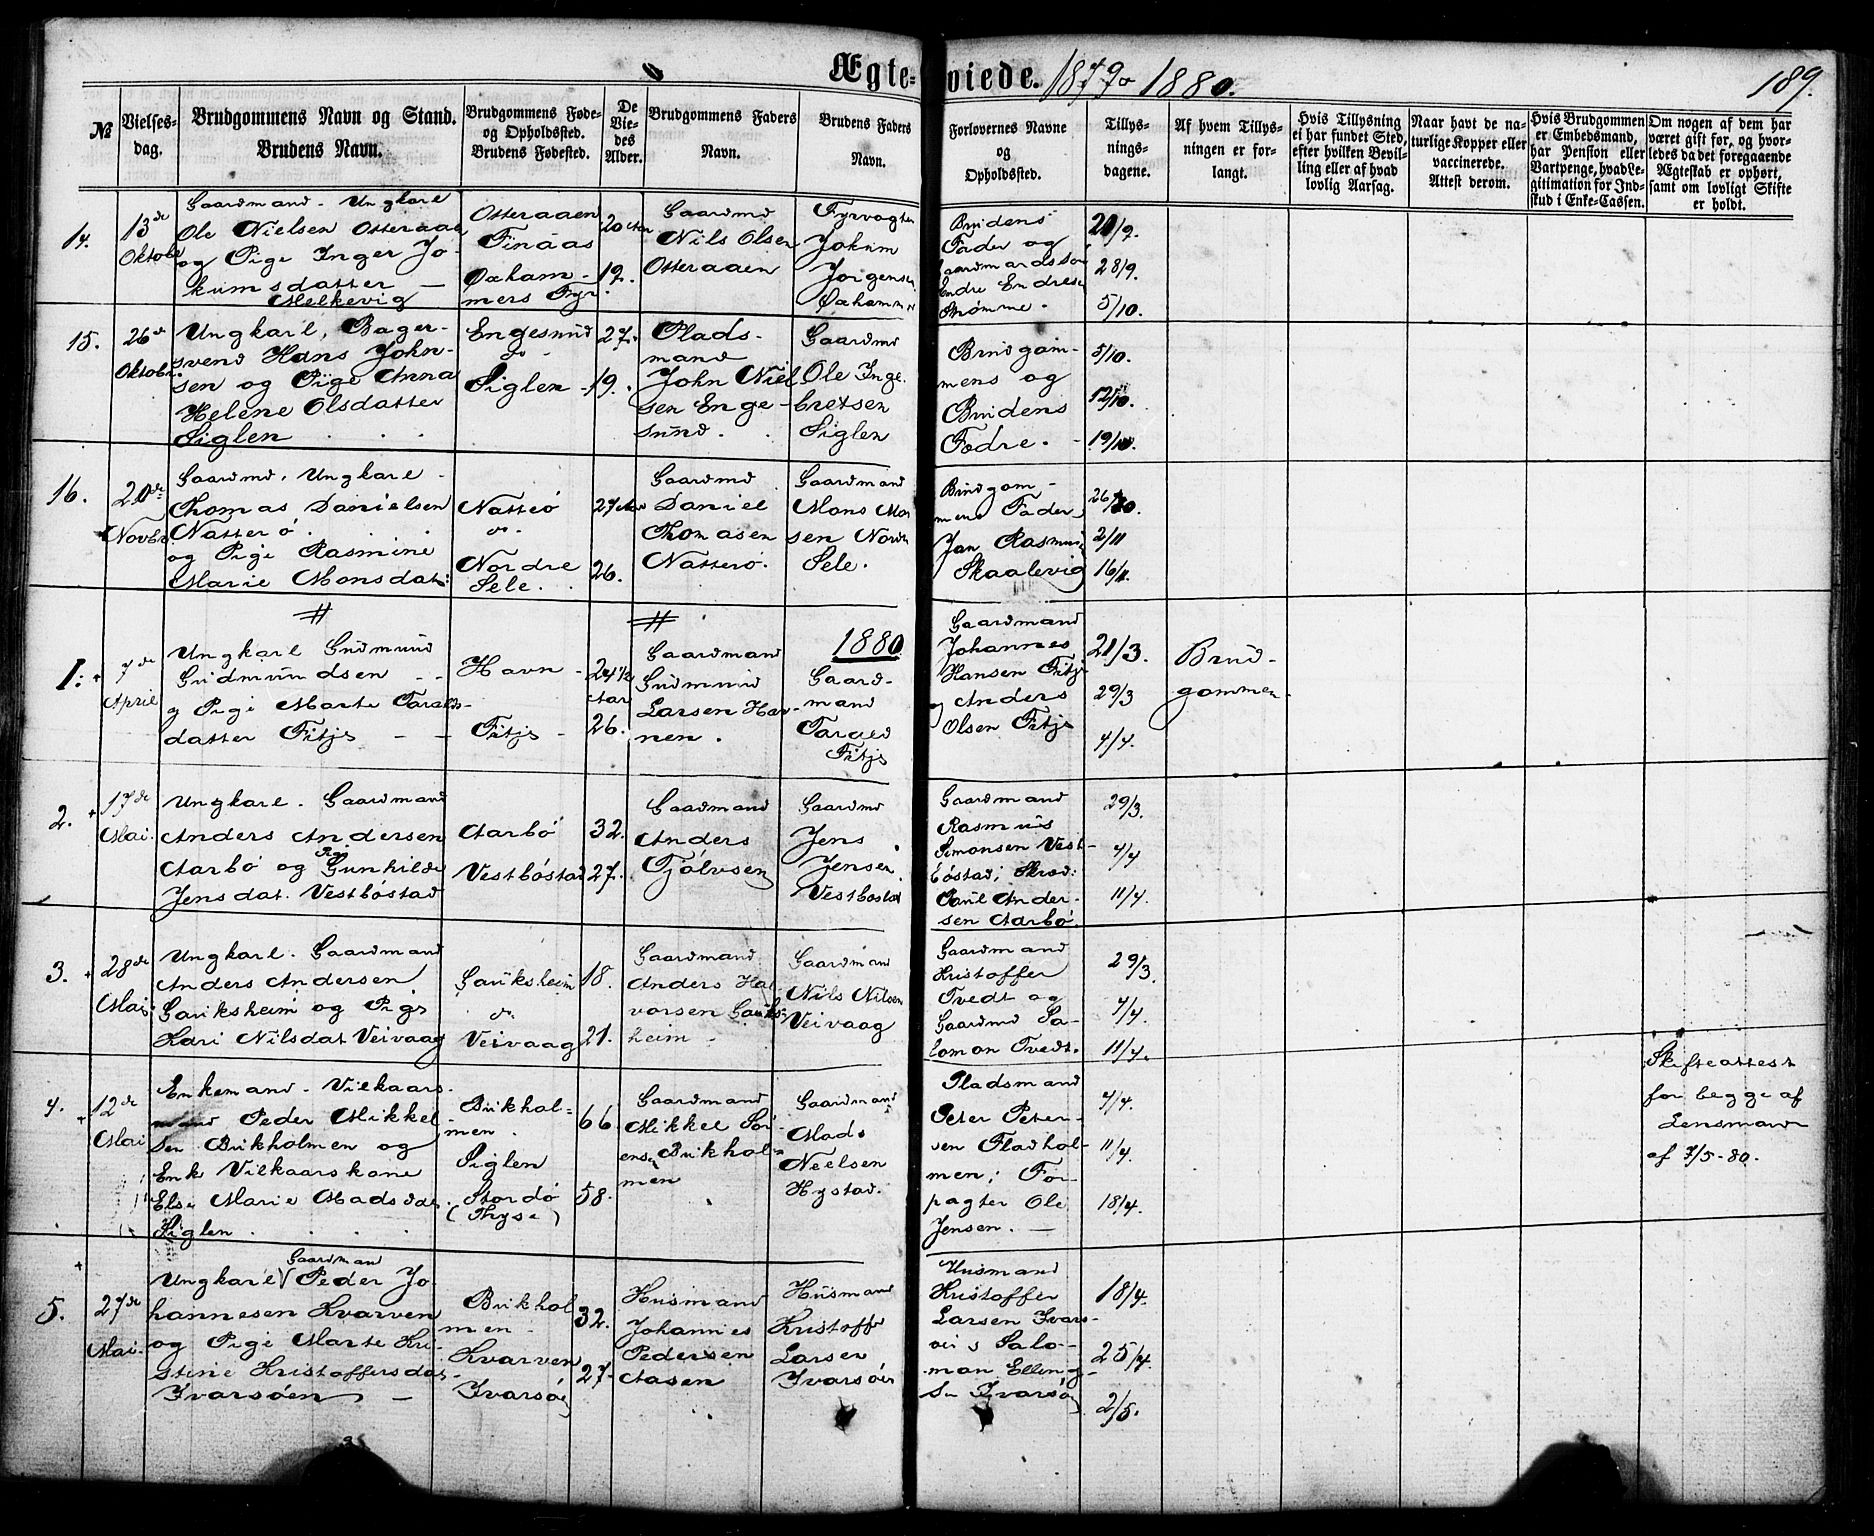 Ægteviede. 1879 o 1880.
189.
№
Vielses-
dag.
Brudgommens Navn og Stand.
Brudens Navn.
Brudgommens Føde-
og Opholdssted.
Brudens Fødested.
De
Vie-
des
Alder.
Brudgommens Faders
Navn.
Brudens Faders
Navn.
Forlovernes Navne
og
Opholdssted.
Tillys-
nings-
dagene.
Af hvem Tillys-
ningen er for-
langt.
Hvis Tillysning
ei har fundet Sted,
efter hvilken Bevil-
ling eller af hvad
lovlig Aarsag.
Naar havt de na-
turlige Kopper eller
vaccinerede.
Attest derom.
Hvis Brudgommen
er Embedsmand,
har Pension eller
Vartpenge, hvad Le-
gitimation for Ind-
skud i Enke-Cassen.
Om nogen af dem har
været gift før, og hvor-
ledes da det foregaaende
Ægteskab er ophørt,
samt om lovligt Skifte
er holdt.
14.
13de
Oktobr
Gaardmand. Ungkarl
Ole Nielsen Otteraae
og Pige Inger Jo-
kumsdatter —
Melkevig
Otteraaen
Finaas
Oxham-
mers Fyr.
20
19.
Gaardmd
Nils Olsen
Otteraaen
Fyrvogter
Jokum
Jorgensen
Oxhammer
Brudens
Fader og
Gaardmandssøn
Endre Endresen
Strømme.
21/9.
28/9.
5/10.
15.
26de
Oktobr.
Ungkarl, Bager-
svend Hans John-
sen og Pige Anna
Helene Olsdatter
Siglen . . .
Engesund
Siglen
27.
19.
Plads-
mand
John Niel-
sen Enge-
sund.
Gaardmd
Ole Inge-
bretsen
Siglen
Brudgom-
mens og
Brudens
Fædre.
5/10.
12/10.
19/10.
16.
20de
Novbr.
Gaardmd, Ungkarl
Thomas Danielsen
Natterø.
og Pige Rasmine
Marie Monsdat:
Natterø
Nordre
Sele.
27
26.
Gaardmd
Daniel
Thomasen
Natterø.
Gaardmand
Mons Mon-
sen Nordre
Sele.
Brudgom-
mens Fader
Jan Rasmus
Skaalevig
26/10.
2/11
16/11.
1880
1.
7de
April
Ungkarl Gudmund
Gudmundsen
og Pige Marte Taralds-
datter Fitje
Havn
Fitje
24 1/2
Aar
26.
Gaardmand
Gudmund
Larsen Hav-
nen.
Gaard-
mand
Tarald
Fitje
Gaardmand
Johannes
Hansen Fitje
og Anders
Olsen Fitje
21/3.
29/3
4/4.
Brud-
gommen
2.
17de
Mai.
Ungkarl. Gaardmand
Anders Andersen
Aarbø og Pige Gunhilde
Jensdat. Vestbøstad
Aarbø
Vestbøstad
32.
27.
Gaardmand
Anders
Tjølvsen
Gaardmd
Jens
Jensen
Vestbøstad
Gaardmand
Rasmus
Simonsen Vest-
bøstad; Skræd:
Poul Ander-
sen Aarbø.
29/3.
4/4
11/4.
3.
28de
Mai
Ungkarl. Gaardmand
Anders Andersen
Gauksheim og Pige
Kari Nilsdat Veivaag
Gauksheim
Veivaag
18.
21.
Gaardmand
Anders Hal-
vorsen Gauks-
heim
Gaardmand
Nils Nilsen
Veivaag
Gaardmand
Kristoffer
Tvedt og
Gaardmd Sa-
lomon Tvedt.
29/3.
4/4.
11/4.
4.
12de
Mai
Enkemand. Vilkaars-
mand Peder Mikkel-
sen Bukholmen og
Enk Vilkaarskone
Else Marie Madsdat.
Siglen.
Bukhol-
men.
Siglen
Stordø
(Thyse)
66.
58.
Gaardmand
Mikkel Sør-
ensen Bukhol-
men
Gaardmand
Mads
Neelsen
Hystad.
Pladsmand
Peter Peter-
sen Fladhol-
men; For-
pagter Ole
Jensen.
4/4.
11/4.
18/4.
Skifteattest
for begge af
Lensmand
af 7/5-80.
5.
27de
Mai.
Ungkarl Gaardmand Peder Jo-
hannesen Kvarven
og Pige Marte Kri-
stine Kristoffersdat.
Ivarsøen
Bukhol
men
Kvarven
Ivarsøe
32.
27.
Husmand
Johannes
Pedersen
Aasen
Husmand
Kristoffer
Larsen
Ivarsøen
Husmand
Kristoffer
Larsen Ivars-
øen, Salo-
mon Elling-
sen Ivarsø
18/4.
25/4.
2/5.